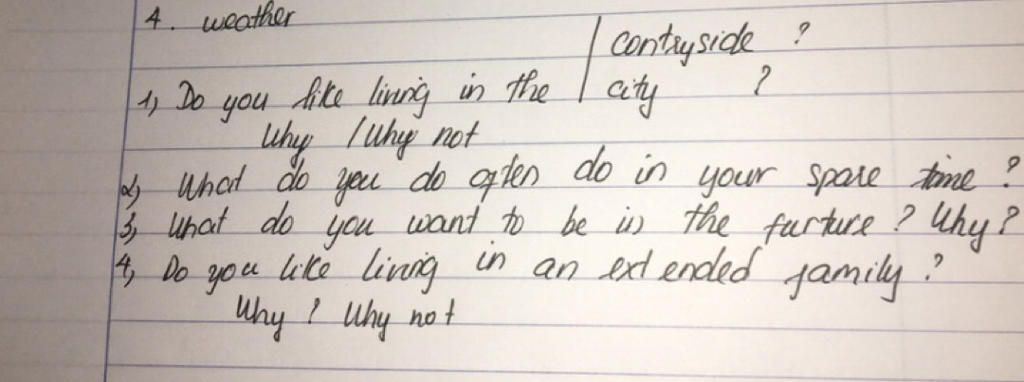 4. weather
contryside ?
1, Do you like living in the city ?
Why / Why not
2, What do you do often do in your spare time ?
3, What do you want to be in the furture ? Why ?
4, Do you like living in an extended family ?
Why ? Why not